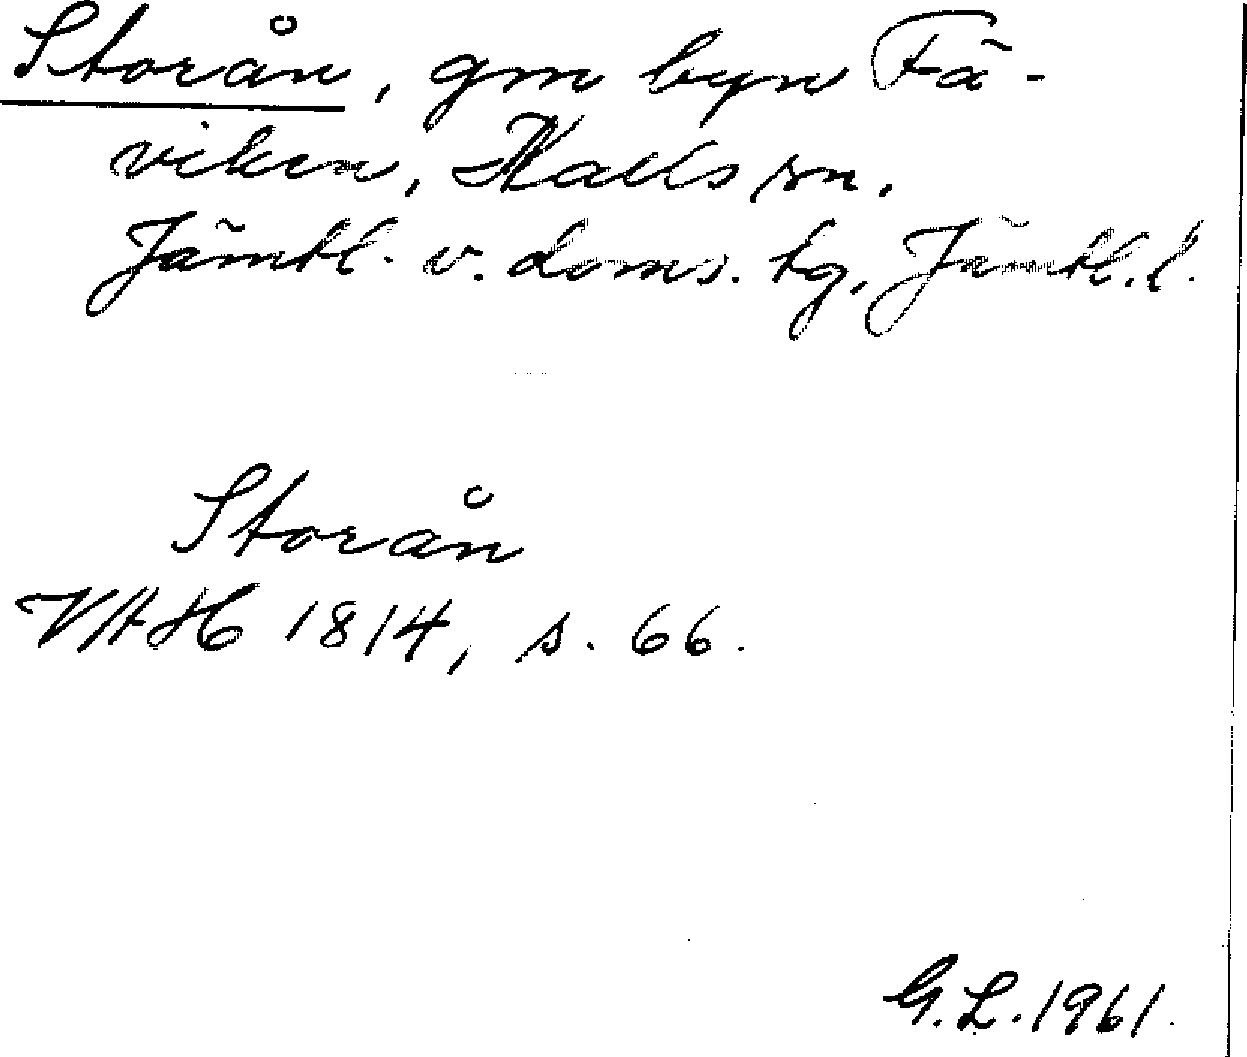 Storån, gm byn Fä-
viken, Kalls sn.
Jämtl. v. doms. tg, Jämtl. l.
Storån
VAH 1814, s. 66.
G. L. 1961.